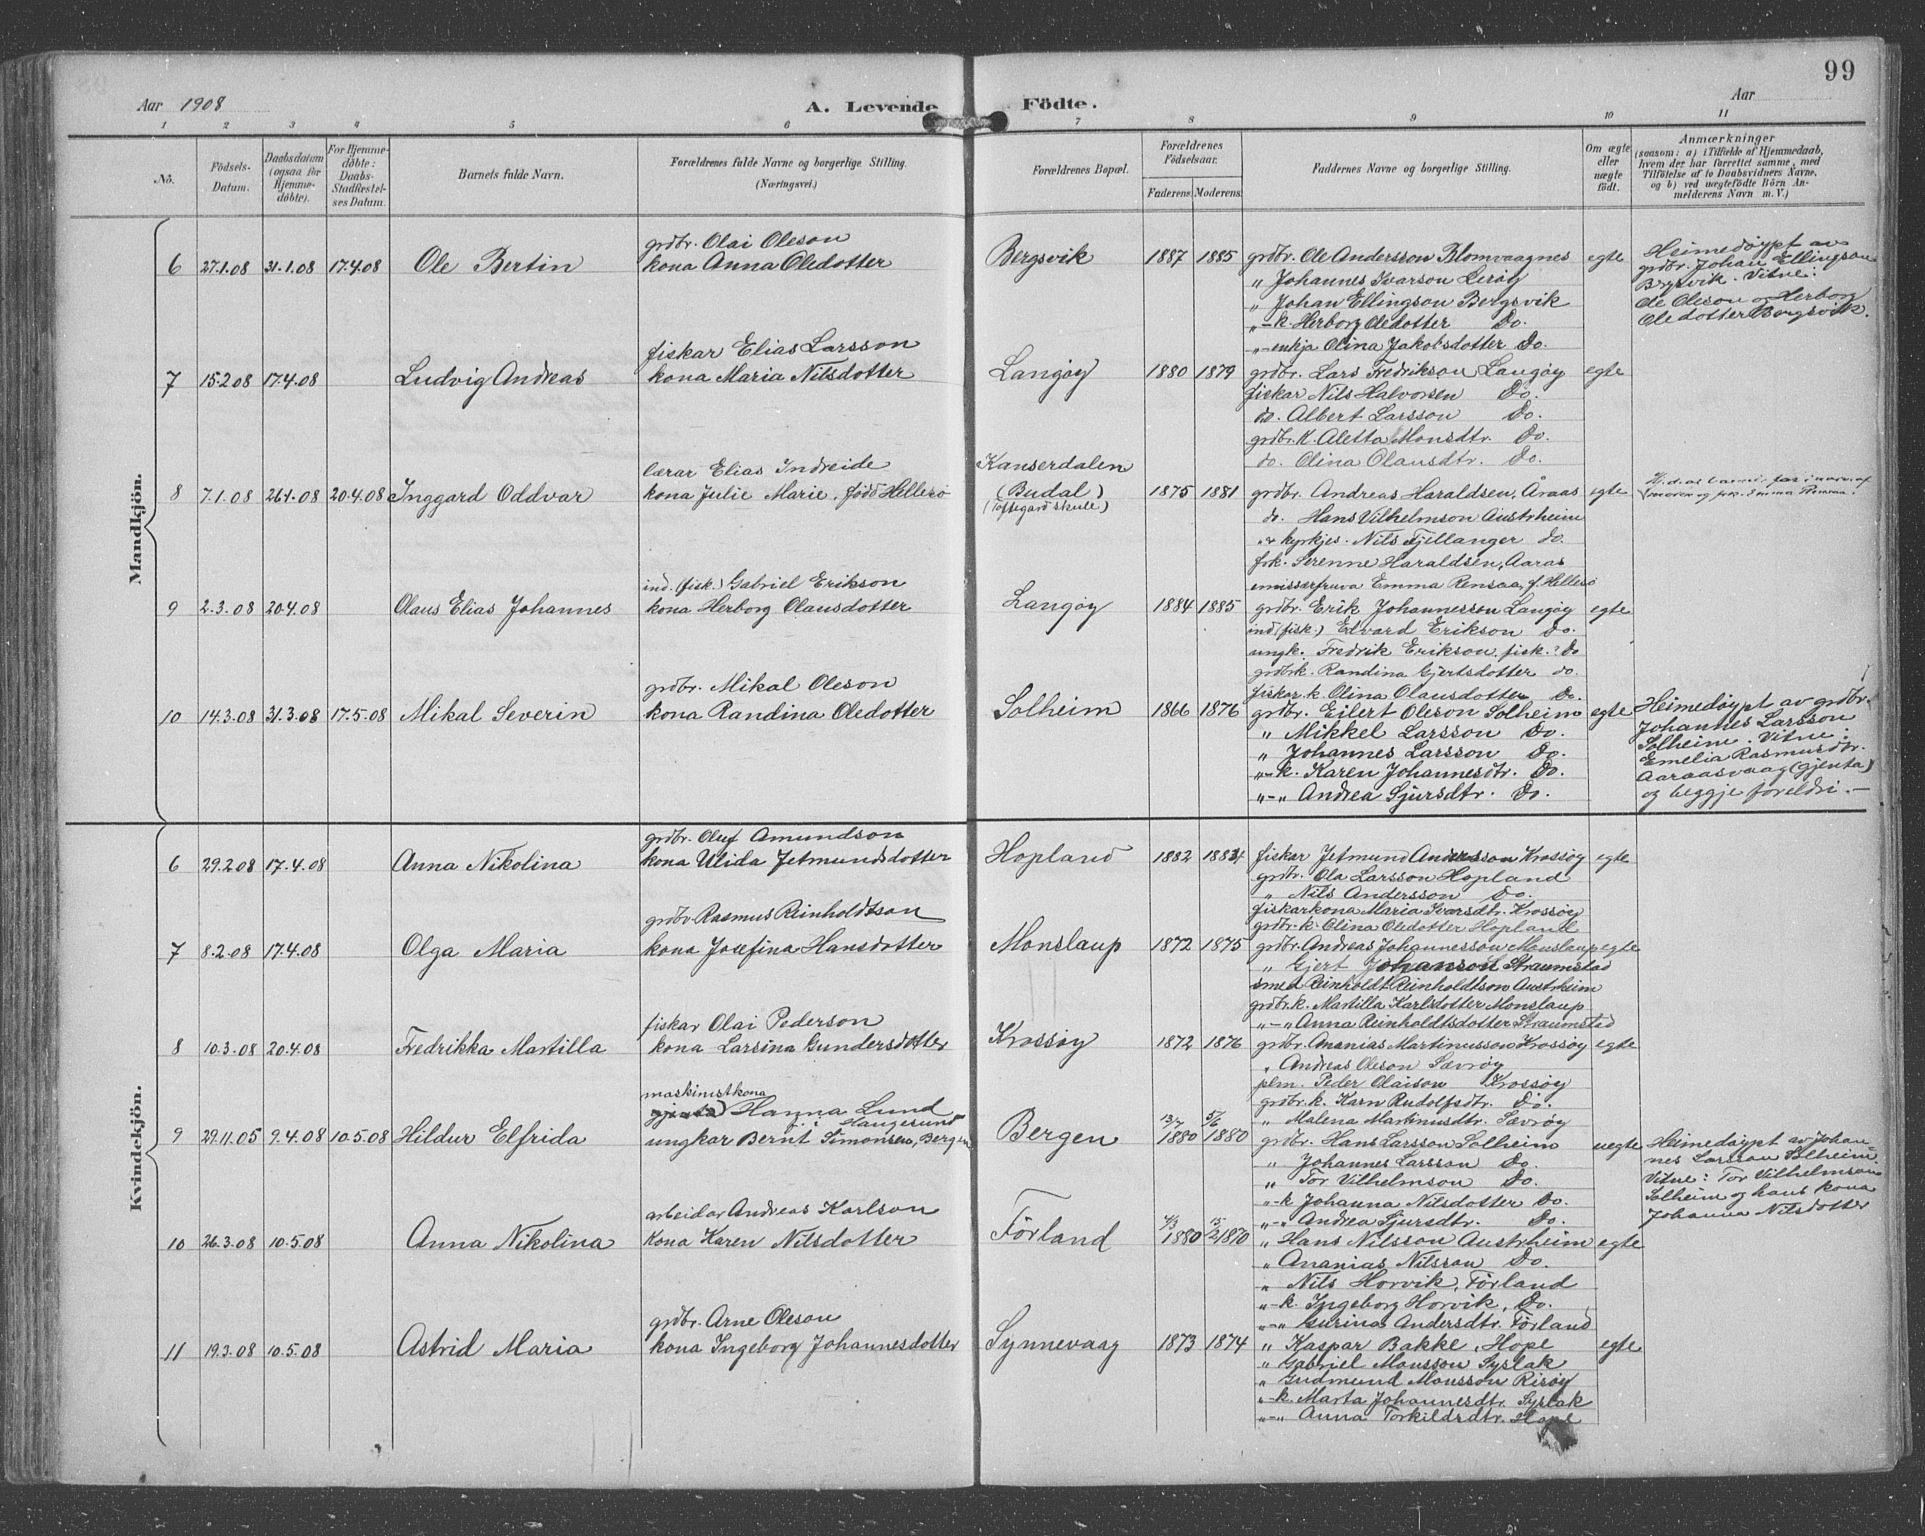 99
Aar 1908
A. Levende Födte.
Aar
1 2 3 4 5 6 7 8 9 10 11
No.
Födsels-
Datum.
Daabsdatum
(ogsaa for
Hjemme-
döbte).
For Hjemme-
döbte:
Daabs-
Stadfæstel-
ses Datum.
Barnets fulde Navn.
Forældrenes fulde Navne og borgerlige Stilling.
(Næringsvei.)
Forældrenes Bopæl.
Forældrenes
Fødselsaar.
Faderens. Moderens.
Faddernes Navne og borgerlige Stilling.
Om ægte
eller
uægte
födt.
Anmærkninger
(saasom: a) i Tilfælde af Hjemmedaab,
hvem der har forrettet samme, med
Tilföielse af to Daabsvidners Navne,
og b) ved uægtefödte Börn An-
melderens Navn m. V.)
Mandkjön.
grdbr. Olai Oleson
6 27.1.08 31.1.08 17.4.08 Ole Bertin kona Anna Oledotter Bergsvik 1887 1885 grdbr. Ole Andersson Blomvaagnes egte
„ Johannes Ivarson Lerøy
„ Johan Ellingson Bergsvik
„-k. Herborg Oledotter Do.
„-enkja Olina Jakobsdotter Do.
Heimedøypt av
grdbr. Johan Ellingson
Bergsvik. Vitne:
Ole Oleson og Herborg
Oledotter Bergsvik.
fiskar Elias Larsson
7 15.2.08 17.4.08 Ludvig Andreas kona Maria Nilsdotter Langøy 1880 1879 grdbr. Lars Fredrikson Langøy egte
fiskar Nils Halvorsen Do.
do. Albert Larsson Do.
grdbr. k. Aletta Monsdtr. Do.
do. Olina Olausdtr. Do.
lærar Elias Indreide
8 7.1.08 26.1.08 20.4.08 Inggard Oddvar kona Julie Marie, født Hellesø Kanserdalen
(Budal)
(Toftegard skule)
1875 1881 grdbr. Andreas Haraldsen, Åraas egte
do. Hans Vilhelmson Austrheim
„ kyrkjes. Nils Fjellanger do.
frk. Serenne Haraldsen, Aaras
emissærfruva Emma Rensaa, f. Hellesø
ind. (fisk.) Gabriel Erikson
9 2.3.08 20.4.08 Olaus Elias Johannes kona Herborg Olausdotter Langøy 1884 1885 grdbr. Erik Johannesson Langøy egte
ind (fisk.) Edvard Erikson Do.
ungk. Fredrik Erikson, fisk. Do
grdbrk. Randina Gjertsdotter do.
fiskar k. Olina Olausdotter Do.
grdbr. Mikal Oleson
10 14.3.08 31.3.08 17.5.08 Mikal Severin kona Randina Oledotter Solheim 1866 1876 grdbr. Eilert Oleson Solheim egte
„ Mikkel Larsson Do.
„ Johannes Larsson Do.
„-k. Karen Johannesdtr. Do.
„-„ Andrea Sjursdtr. Do.
Heimedøypt av grdbr.
Johannes Larsson
Solheim. Vitne:
Emelia Rasmusdtr.
Aaraasvaag (gjenta)
og beggje foreldri.-
Kvindekjön.
grdbr. Oluf Amundson
6 29.2.08 17.4.08 Anna Nikolina kona Ulida Jetmundsdotter Hopland 1882 1884 fiskar Jetmund Andersson Krossøy egte
grdbr. Ola Larsson Hopland
„ Nils Andersson Do.
fiskarkona Maria Ivarsdtr. Krossøy
grdbr. k. Elina Oledotter Hopland
grdbr. Rasmus Reinholdtson
7 8.2.08 17.4.08 Olga Maria kona Josefina Hansdotter Monslaup 1872 1875 grdbr. Andreas Johannesson Monslaup egte
„ Gjert Johanson Straumstad
smed Reinholdt Reinholdtson Austrheim
grdbr. k. Martilla Karlsdotter Monslaup
„-„ Anna Reinholdtsdotter Straumstad
fiskar Olai Pederson
8 10.3.08 20.4.08 Fredrikka Martilla kona Larsina Gundersdotter Krossøy 1872 1876 grdbr. Ananias Martinusson Krossøy egte
„ Andreas Oleson Sævrøy
plm. Peder Olaison Krossøy
grdbr. k. Karn Rudolfsdtr. Do.
„ Malena Martinusdtr. Sævrøy
maskinistkona
gjenta) Hanna Lund
Haugesund
9 29.11.05 9.4.08 10.5.08 Hildur Elfrida ungkar Bernt Simonsen, Bergen Bergen 13/7 1880 5/6 1880 grdbr. Hans Larsson Solheim uegte
„ Johannes Larsson Do.
„ Tor Vilhelmson Do.
„-k Johanna Nilsdotter Do.
„-„ Andrea Sjursdtr. Do.
Heimedøypt av Johan-
nes Larsson Solheim.
Vitne: Tor Vilhelmson
Solheim og hans kona
Johanna Nilsdotter
arbeidar Andreas Karlson
10 26.3.08 10.5.08 Anna Nikolina kona Karen Nilsdotter Förland 4/3 1880 15/2 1870 „ Hans Nilsson Austrheim egte
„ Ananias Nilsson Do.
„ Nils Horvik, Förland
„-k. Ingeborg Horvik, Do.
„-„ Gurina Andersdtr. Förland
grdbr. Arne Oleson
11 19.3.08 10.5.08 Astrid Maria kona Ingeborg Johannesdotter Synnevaag 1873 1874 „ Kaspar Bakke, Hope egte
„ Gabriel Monsson Syslak
„ Gudmund Monsson Risøy
„-k. Marta Johannesdtr. Syslak
„-„ Anna Torkildsdtr. Hope